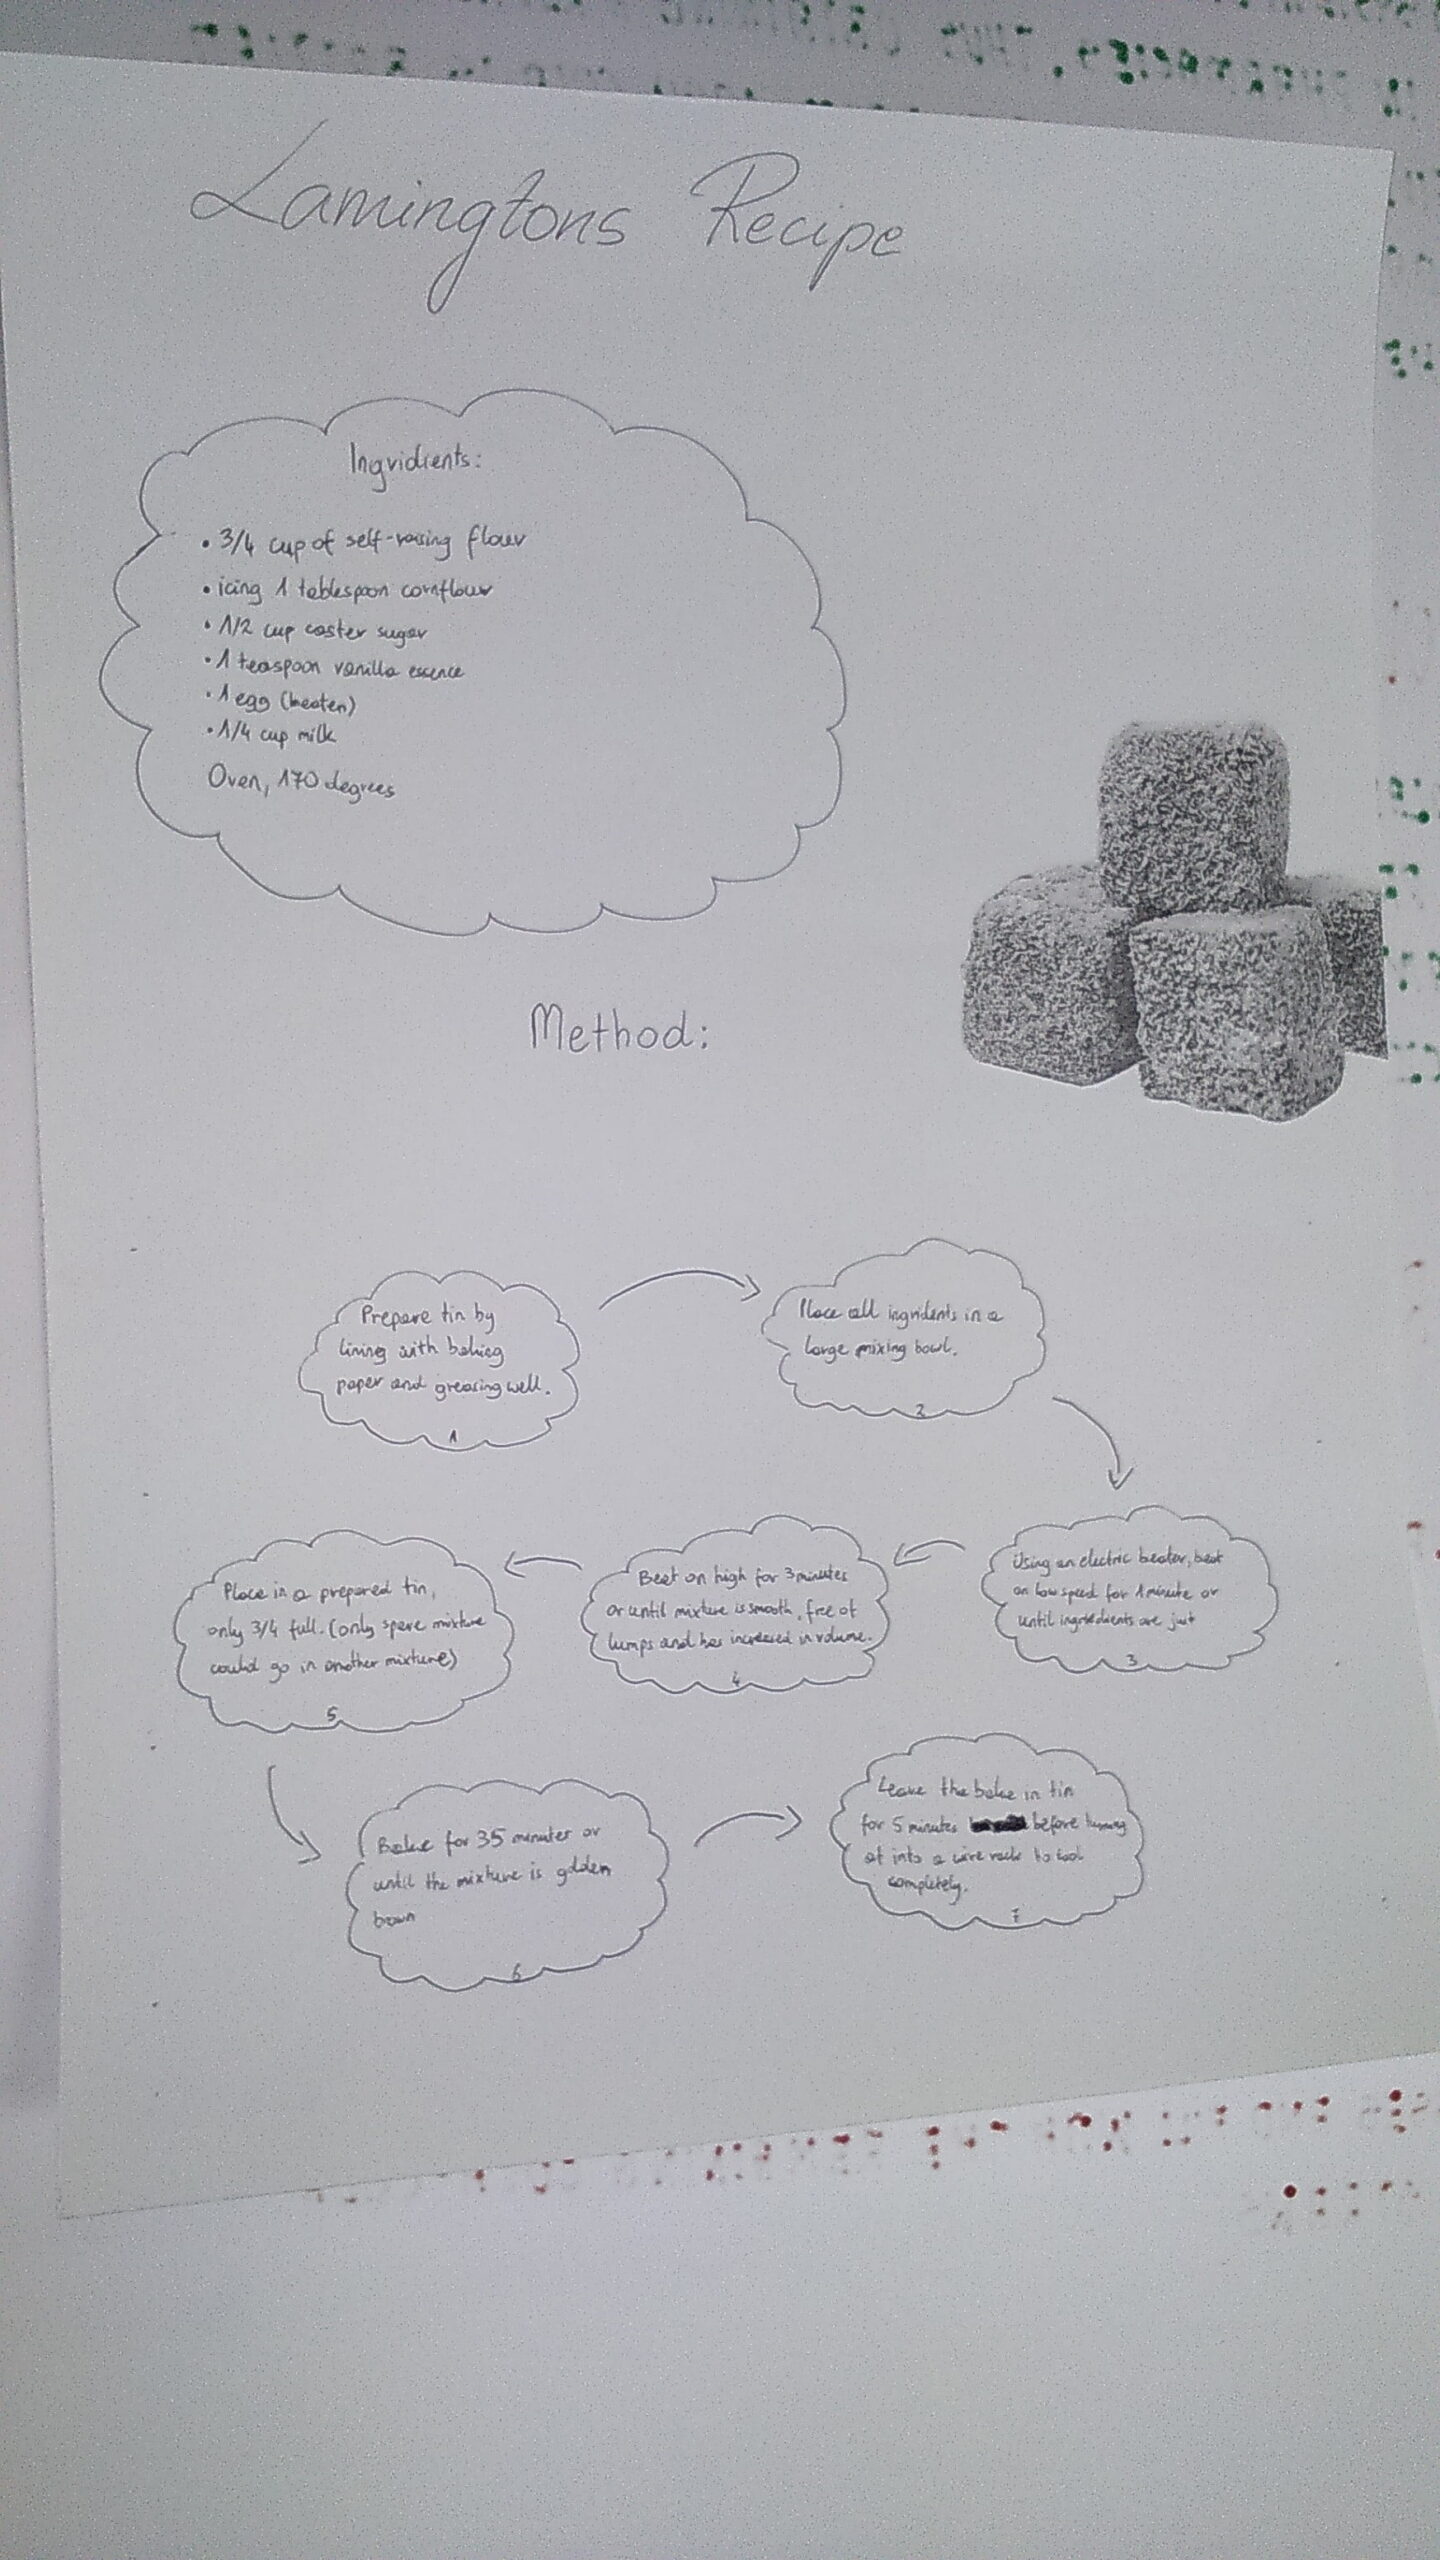 Lamingtons Recipe
Ingridients:
• 3/4 cup of self-raising flour
• icing 1 tablespoon cornflour
• 1/2 cup caster sugar
• 1 teaspoon vanilla essence
• 1 egg (beaten)
• 1/4 cup milk
Oven, 170 degrees
Method:
Prepare tin by
lining with baking
paper and greasing well.
1
Place all ingridents in a
large mixing bowl.
2
Using an electric beater, beat
on low speed for 1 minute or
until ingredients are just
3
Beat on high for 3 minutes
or until mixture is smooth, free of
lumps and has increased in volume.
4
Place in a prepared tin,
only 3/4 full. (only spare mixture
could go in another mixture)
5
Bake for 35 minutes or
until the mixture is golden
brown
6
Leave the bake in tin
for 5 minutes before turning
ot into a wire rack to cool
completely.
7